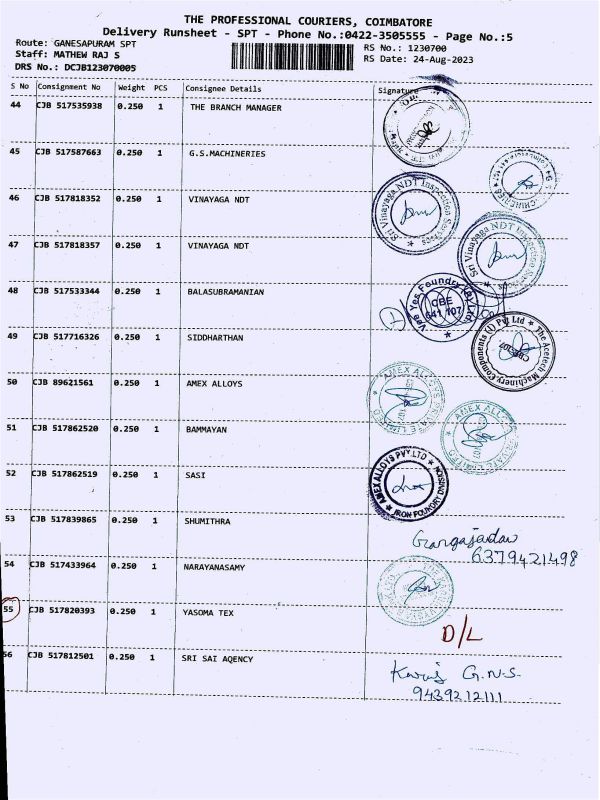 THE PROFESSIONAL COURIERS, COIMBATORE
Delivery Runsheet - SPT - Phone No.:0422-3505555 - Page No.:5
Route: GANESAPURAM SPT RS No.: 1230700
Staff: MATHEW RAJ S RS Date: 24-Aug-2023
DRS No.: DCJB123070005
S No Consignment No Weight PCS Consignee Details Signature
44 CJB 517535938 0.250 1 THE BRANCH MANAGER
45 CJB 517587663 0.250 1 G.S.MACHINERIES
46 CJB 517818352 0.250 1 VINAYAGA NDT
Sri Vinayaga NDT Inspection Services
47 CJB 517818357 0.250 1 VINAYAGA NDT
Sri Vinayaga NDT Inspection Services
48 CJB 517533344 0.250 1 BALASUBRAMANIAN
Vee Yes Foundry (P) Ltd
CBE
641 107
49 CJB 517716326 0.250 1 SIDDHARTHAN
The Acetech Machinery Components (I) Pvt Ltd
50 CJB 89621561 0.250 1 AMEX ALLOYS
AMEX ALLOYS PRIVATE LIMITED
51 CJB 517862520 0.250 1 BAMMAYAN
AMEX ALLOYS PRIVATE LIMITED
52 CJB 517862519 0.250 1 SASI
AMEX ALLOYS PVT LTD
IRON FOUNDRY DIVISION
53 CJB 517839865 0.250 1 SHUMITHRA
6379421498
54 CJB 517433964 0.250 1 NARAYANASAMY
55 CJB 517820393 0.250 1 YASOMA TEX
D/L
56 CJB 517812501 0.250 1 SRI SAI AQENCY
G.N.S.
9439212111